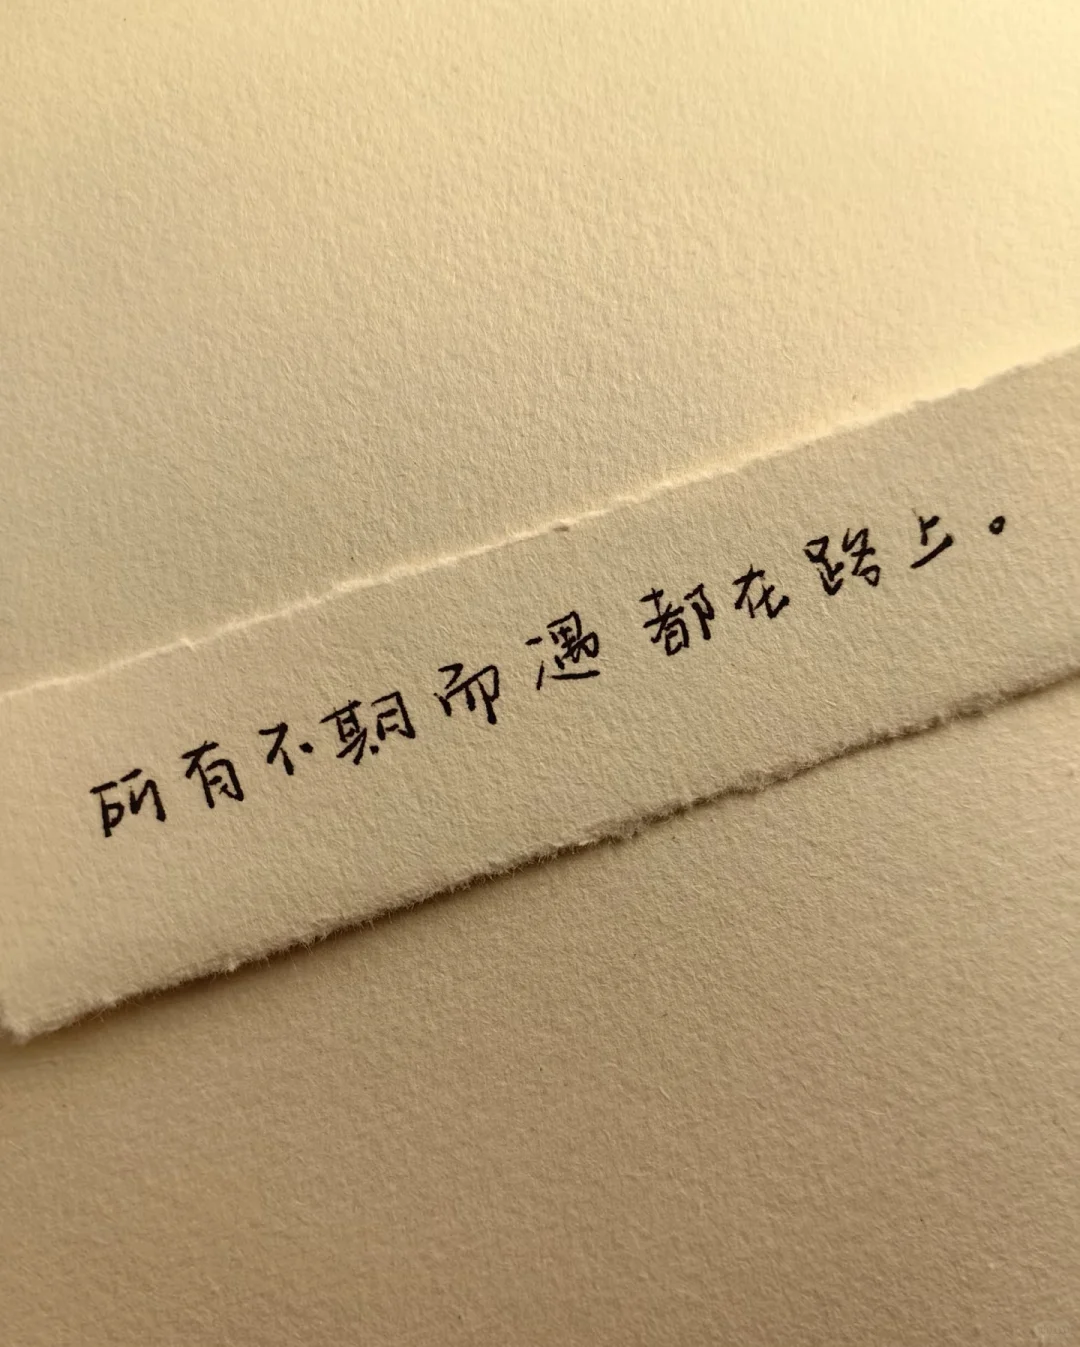 所有不期而遇 都在路上。